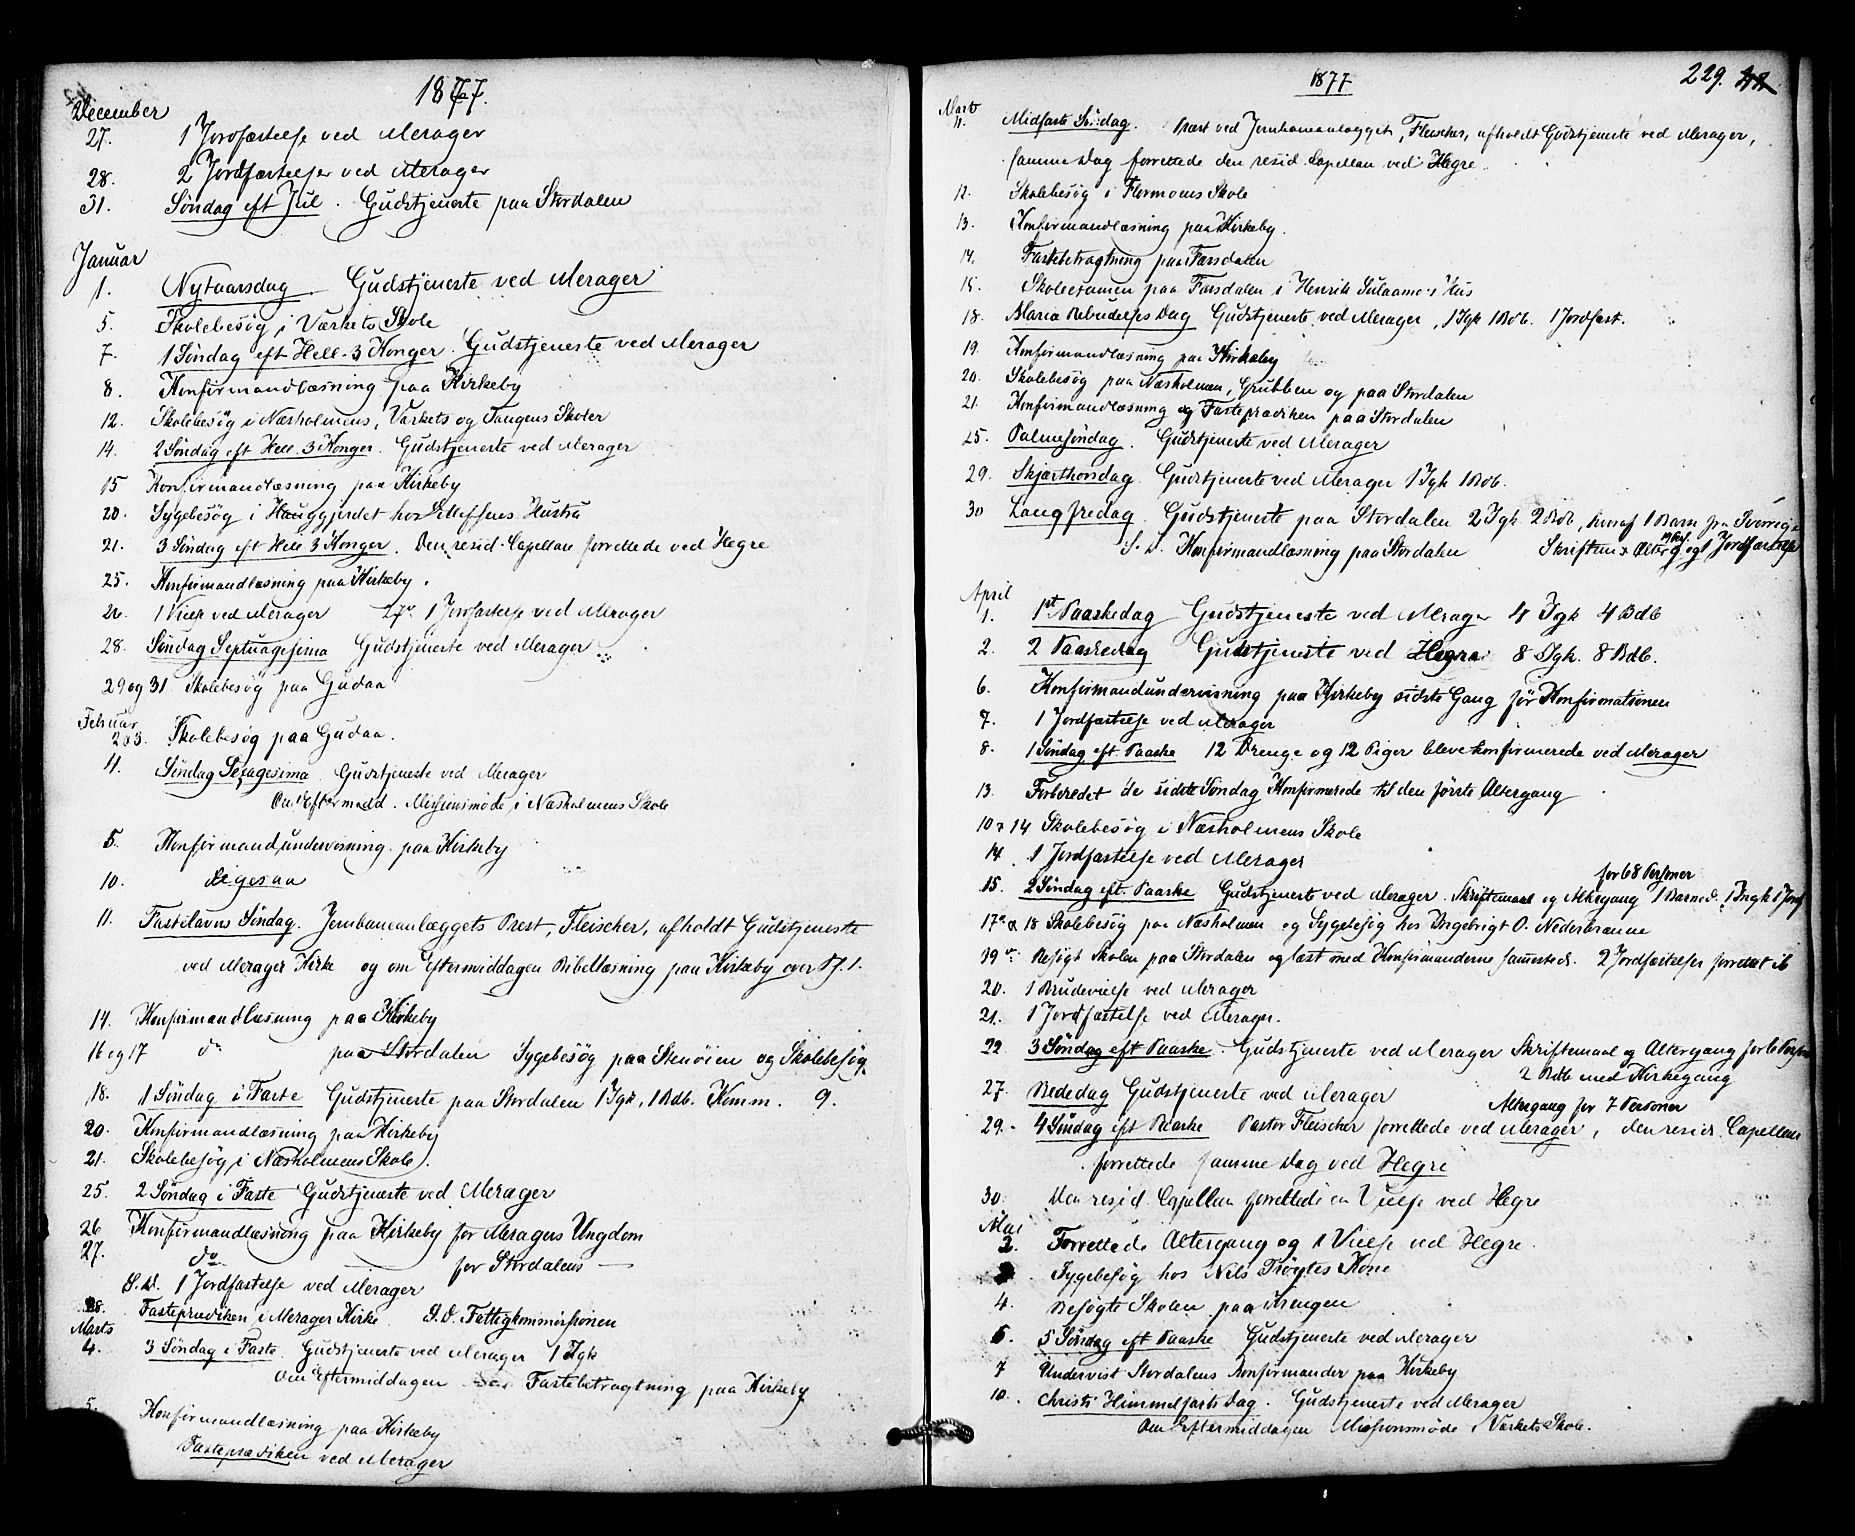 1877.
December
27. 1 Jordfæstelse ved Merager
28. 2 Jordfæstelser ved Merager
31. Søndag eft Jul. Gudstjeneste paa Stordalen
Januar
1. Nytaarsdag. Gudstjeneste ved Merager
5. Skolebesøg i Værkets Skole
7. 1 Søndag eft Hell-3 Konger. Gudstjeneste ved Merager
8. Konfirmandlæsning paa Kirkeby
12. Skolebesøg i Næsholmens, Værkets og Tangens Skoler
14. 2 Søndag eft Hell. 3 Konger. Gudstjeneste ved Merager
15 Konfirmandlæsning paa Kirkeby
20. Sygebesøg i Hauggjerdet hos Steffens Hustru
21. 3 Søndag eft Hell 3 Konger. Den resid. Capellan forrettede ved Hegre
25. Konfirmandlæsning paa Kirkeby.
26. 1 Vielse ved Merager 27de 1 Jordfæstelse ved Merager
28. Søndag Septuagesima Gudstjeneste ved Merager
29 og 31 Skolebesøg paa Gudaa
Februar
2 o 3. Skolebesøg paa Gudaa.
4. Søndag Sexagesima. Gudstjeneste ved Merager
Om Eftermidd. Missionsmøde i Næsholmens Skole
5. Konfirmandundervisning paa Kirkeby
10. Ligesaa
11. Fastelavns Søndag. Jernbaneanlæggets Prest, Fleischer, afholdt Gudstjeneste
ved Merager Kirke og om Eftermiddagen Bibellæsning paa Kirkeby over Ps. 1.
14. Konfirmandlæsning paa Kirkeby
16 og 17 do paa Stordalen Sygebesøg paa Stenøien og Skolebesøg.
18. 1 Søndag i Faste Gudstjeneste paa Stordalen 1 Igk, 1 Bdb. Komm. 9.
20. Konfirmandlæsning paa Kirkeby
21. Skolebesøg i Næsholmens Skole.
25. 2 Søndag i Faste Gudstjeneste ved Merager
26 Konfirmandlæsning paa Kirkeby for Meragers Ungdom
27. do — for Stordalens —
S.D. 1 Jordfæstelse ved Merager
28. Fasteprædiken i Merager Kirke. S.D. Fattigkommissionen
Marts
4. 3 Søndag i Faste. Gudstjeneste ved Merager 1 Igk
Om Eftermiddagen Fastebetragtning paa Kirkeby
5. Konfirmandlæsning paa Kirkeby
Fasteprædiken ved Merager
1877
229.
Marts
11. Midfaste Søndag. Præst ved Jernbaneanlægget, Fleischer, afholdt Gudstjeneste ved Merager,
samme Dag forrettede den resid. Capellan ved Hegre.
12. Skolebesøg i Flormoens Skole
13. Konfirmandlæsning paa Kirkeby.
14. Fastebetragtning paa Færsdalen
15. Skoleexamen paa Færsdalen i Henrik Sulaamo's Hus
18. Maria Bebudelses Dag Gudstjeneste ved Merager, 1 Igk 1 Bdb. 1 Jordfæst.
19. Konfirmandlæsning paa Kirkeby
20. Skolebesøg paa Næsholmen, Grubben og paa Stordalen
21. Konfirmandlæsning og Fasteprædiken paa Stordalen
25. Palmesøndag. Gudstjeneste ved Merager
29. Skjærthorsdag. Gudstjeneste ved Merager 1 Igk 1 Bdb.
30 Langfredag. Gudstjeneste paa Stordalen 2 Igk 2 Bdb, heraf 1 Barn fra Sverrige
S.D. Konfirmandlæsning paa Stordalen Skriftem & Alterg og 1 Jordfæstelse
April
1. 1st Paaskedag Gudstjeneste ved Merager 4 Igk 4 Bdb
2. 2 Paaskedag Gudstjeneste ved Hegra 8 Igk. 8 Bdb.
6. Konfirmandundervisning paa Kirkeby sidste Gang før Konfirmationen
7. 1 Jordfæstelse ved Merager
8. 1 Søndag eft Paaske 12 Drenge og 12 Piger bleve konfirmerede ved Merager
13. Forberedet de sidste Søndag Konfirmerede til den første Altergang
10 & 14 Skolebesøg i Næsholmens Skole
14. 1 Jordfæstelse ved Merager
for 68 Personer
15. 2 Søndag eft. Paaske Gudstjeneste ved Merager Skriftemaal og Altergang 1 Barned. 1 Ingk 1 Jordf
17de & 18 Skolebesøg paa Næsholmen og Sygebesøg hos Ingebrigt O. Nederbrænne
19de Besøgt Skolen paa Stordalen og læst med Konfirmanderne sammesteds. 2 Jordfæstelser forrettet ib
20. 1 Brudevielse ved Merager
21. 1 Jordfæstelse ved Merager.
22 3 Søndag eft Paaske. Gudstjeneste ved Merager Skriftemaal og Altergang for 6 Person
2 Bdb med Kirkegang
27. Bededag Gudstjeneste ved Merager Altergang for 7 Personer
29. 4 Søndag eft Paaske Pastor Fleischer forrettede ved Merager, den resid. Capellan
forrettede samme Dag ved Hegre
30. Den resid. Capellan forrettede en Vielse ved Hegre
Mai
2. Forrettede Altergang og 1 Vielse ved Hegre.
Sygebesøg hos Nels Trøytes Kone
4. Besøgte Skolen paa Krengen
6. 5 Søndag eft Paaske Gudstjeneste ved Merager
7 Undervist Stordalens Konfirmander paa Kirkeby
10. Christi Himmelfarts Dag. Gudstjeneste ved Merager
Om Eftermiddagen Missionsmøde i Værkets Skole.